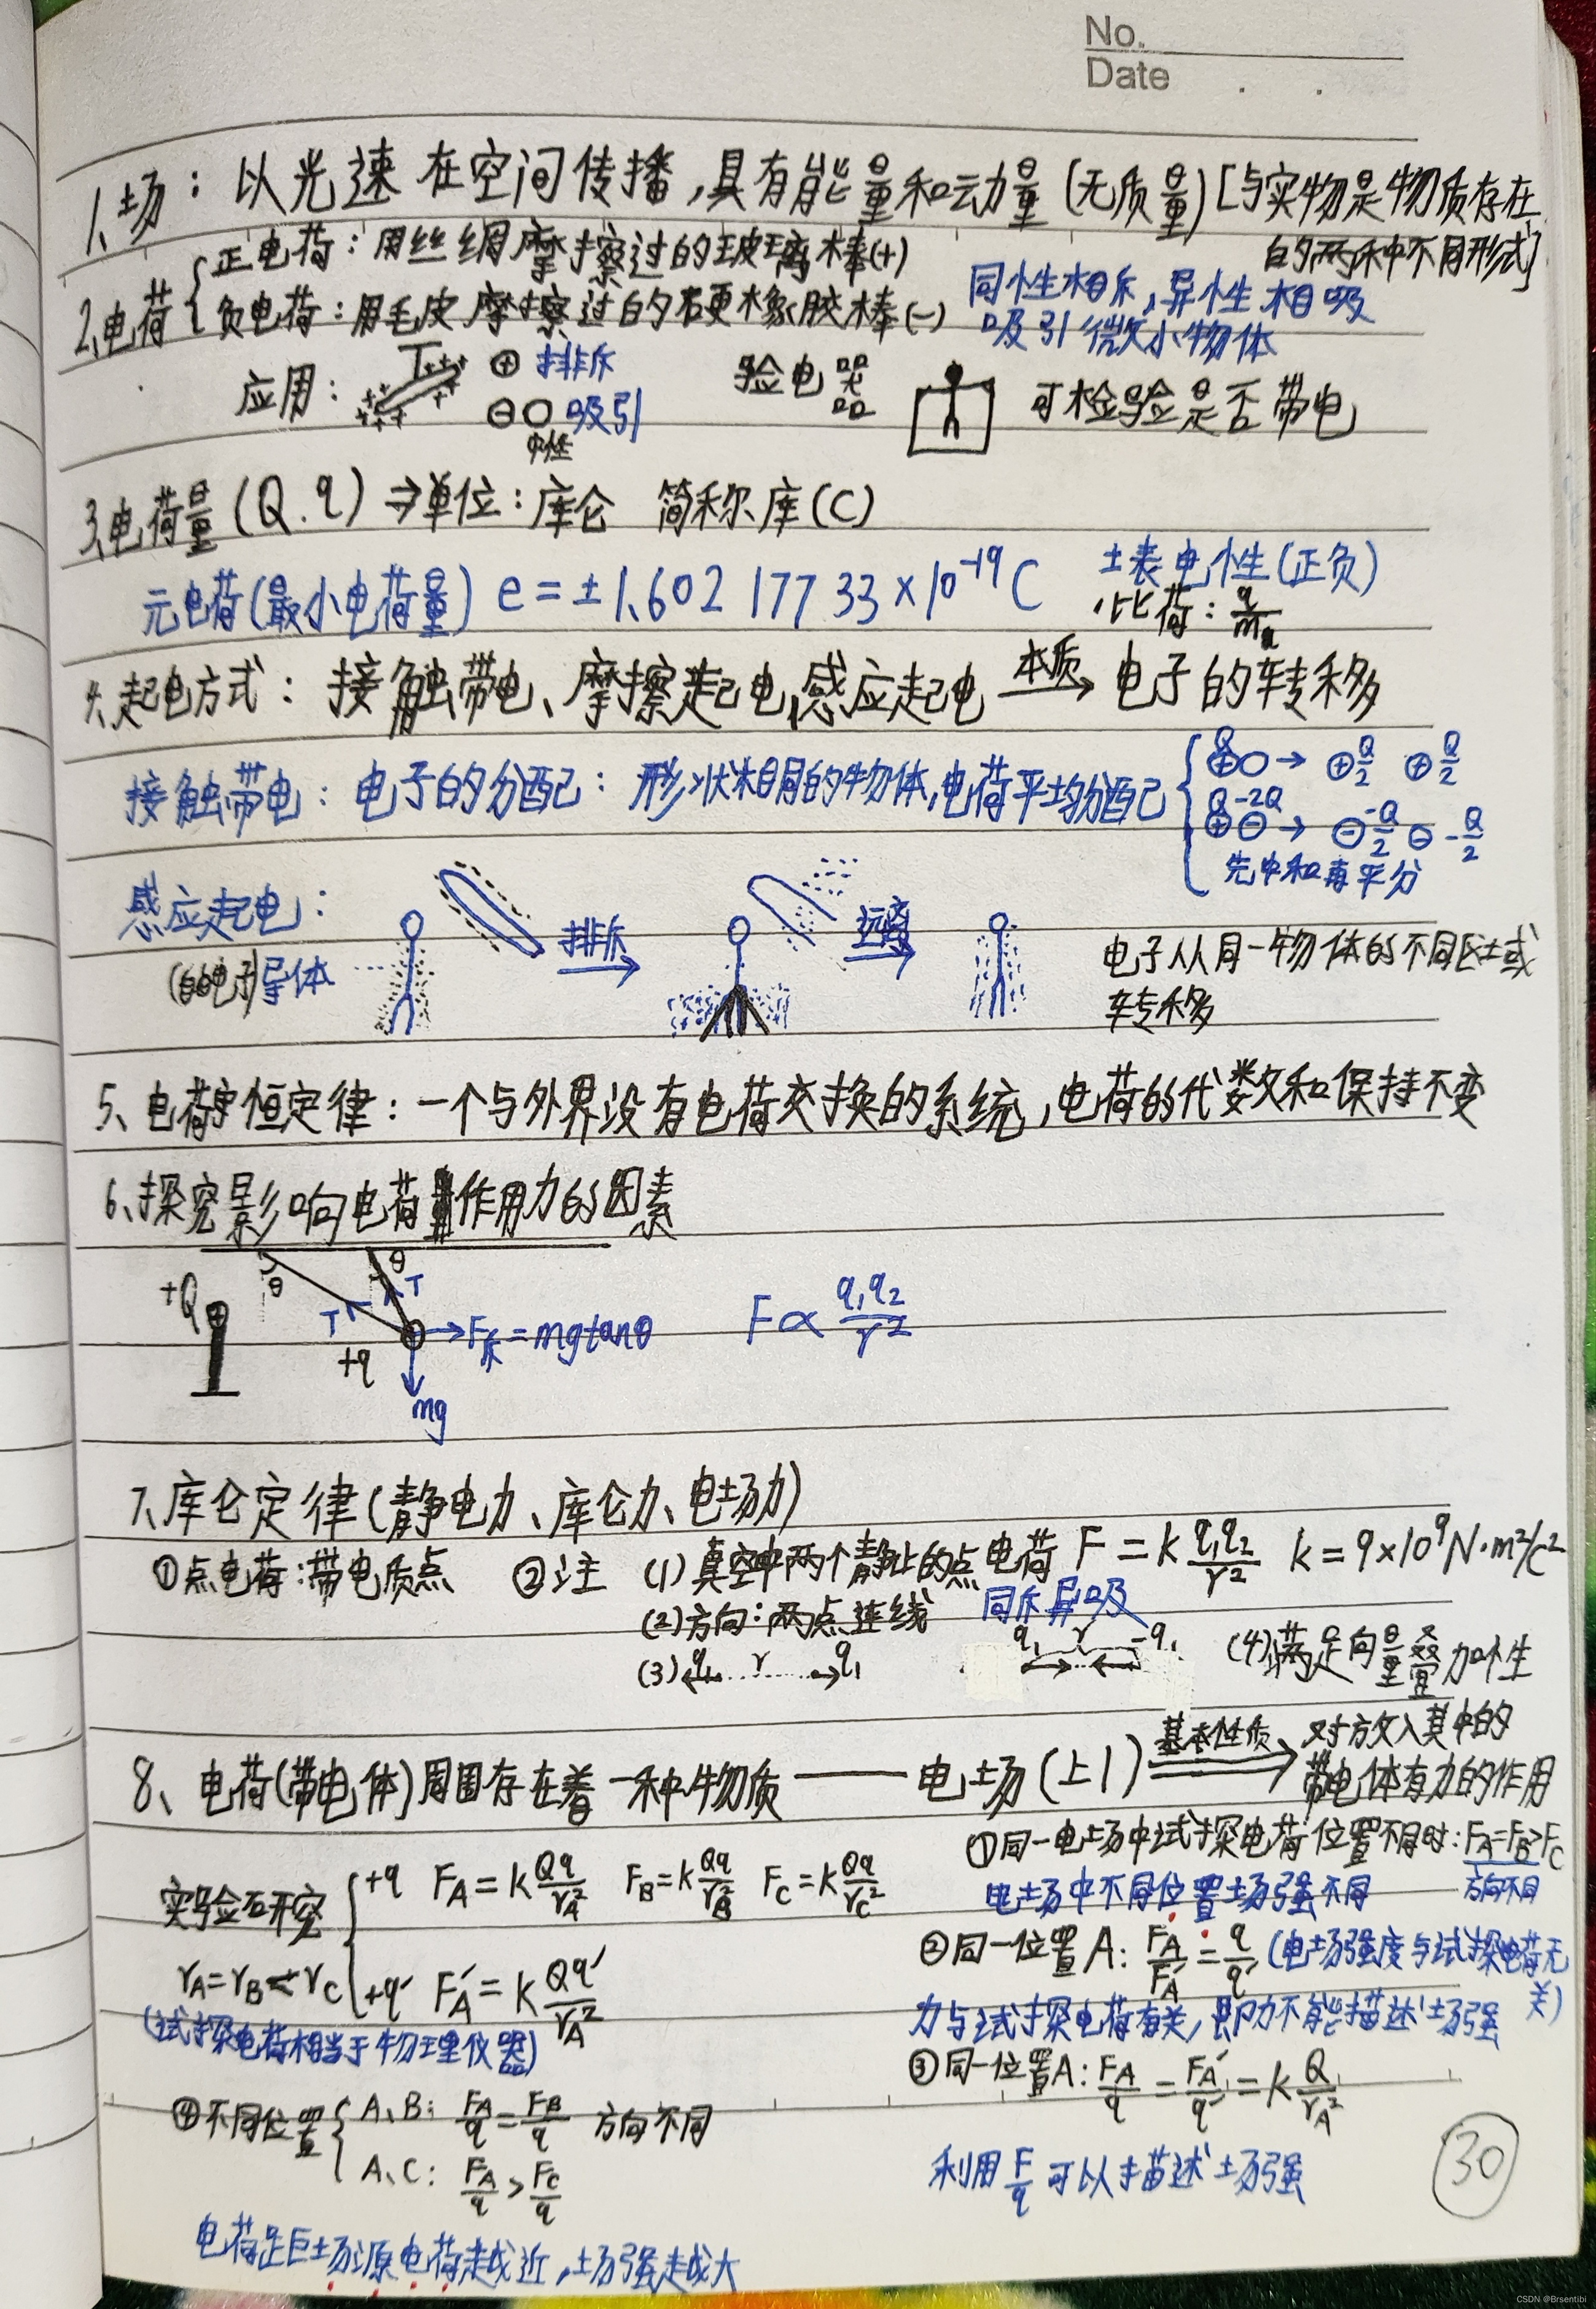 No.
Date
1、场：以光速在空间传播，具有能量和动量(无质量)[与实物是物质存在
的两种不同形式]
2、电荷 正电荷：用丝绸摩擦过的玻璃棒(+)
负电荷：用毛皮摩擦过的硬橡胶棒(-)
同性相斥，异性相吸
吸引微小物体
应用： ⊕排斥 验电器 可检验是否带电
⊖○吸引
中性
3、电荷量(Q.q)⇒单位：库仑 简称库(C)
元电荷(最小电荷量) e=±1.602 177 33×10⁻¹⁹C ±表电性(正负)
比荷：q/m
4、起电方式：接触带电、摩擦起电、感应起电 本质→ 电子的转移
接触带电：电子的分配：形状相同的物体，电荷平均分配
Q ⊕○→ ⊕Q/2 ⊕Q/2
Q -2Q ⊕⊖→ ⊖-Q/2 ⊖-Q/2
先中和再平分
感应起电： 排斥 远离
(自由电子)导体
电子从同一物体的不同区域
转移
5、电荷守恒定律：一个与外界没有电荷交换的系统，电荷的代数和保持不变
6、探究影响电荷作用力的因素
+Q θ θ T T +q F斥=mgtanθ mg
F∝q₁q₂/r²
7、库仑定律(静电力、库仑力、电场力)
①点电荷：带电质点 ②注 (1)真空中两个静止的点电荷 F=k q₁q₂/r² k=9×10⁹N·m²/c²
(2)方向：两点连线 同斥异吸
(3) q₁ r q₁ q₁ r -q₁ (4)满足向量叠加性
8、电荷(带电体)周围存在着一种物质——电场(上1) 基本性质⇒ 对放入其中的
带电体有力的作用
实验研究 +q F_A=k Qq/r_A² F_B=k Qq/r_B² F_C=k Qq/r_C²
r_A=r_B<r_C +q′ F_A′=k Qq′/r_A²
(试探电荷相当于物理仪器)
①同一电场中试探电荷位置不同时：F_A=F_B>F_C
电场中不同位置场强不同 方向不同
②同一位置A：F_A/F_A′=q/q′(电场强度与试探电荷无
关)
力与试探电荷有关，即力不能描述场强
③同一位置A：F_A/q=F_A′/q′=k Q/r_A²
④不同位置 A、B：F_A/q=F_B/q 方向不同
A、C：F_A/q>F_C/q
利用F/q可以描述场强
电荷距场源电荷越近，场强越大
30
CSDN @Brsentibi